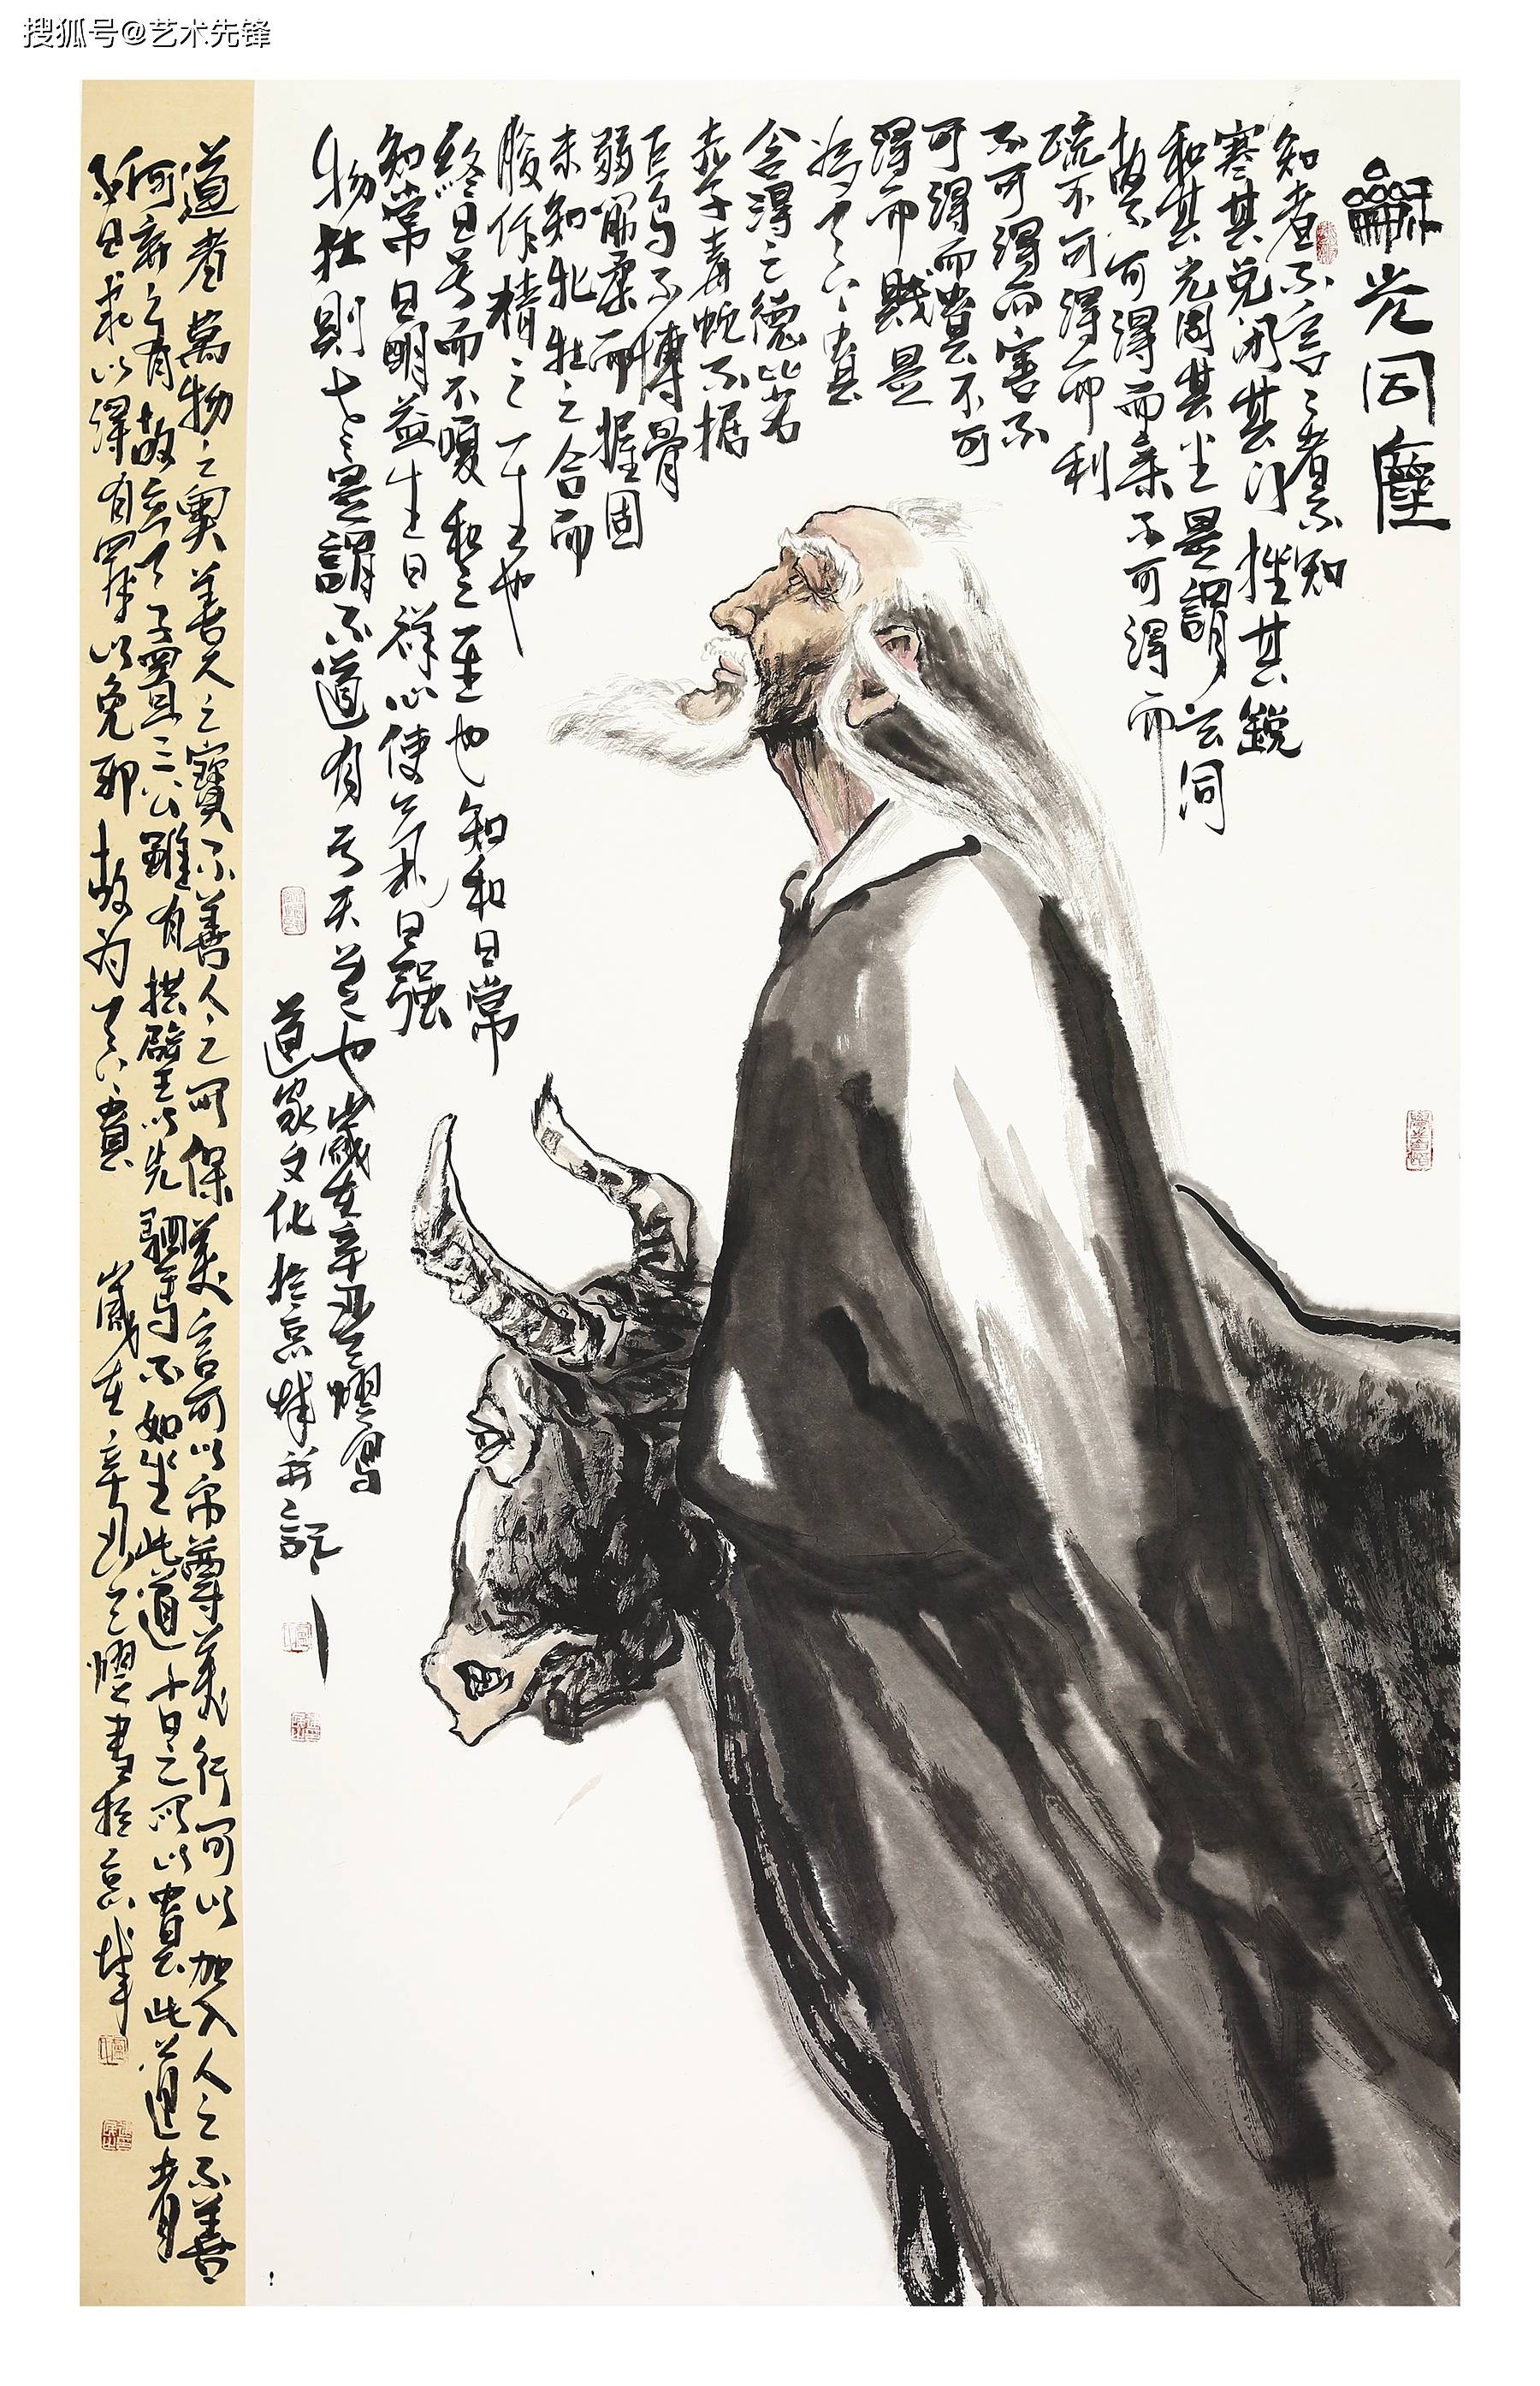 搜狐号@艺术先锋
龢光同塵
知者不言〻者不知
塞其兑闭其门挫其銳
和其光同其尘是謂玄同
故不可得而亲不可得而
疏不可得而利
不可得而害不
可得而貴不可
得而賤是
为天下貴
含得之德比若
赤子毒蛇不据
鸟不搏骨
弱筋柔而握固
未知牝牡之合而
朘作精之至也
終日号而不嗄和之至也知和日常
知常日明益生日祥心使气日强
物壮則老是謂不道有亏天道也歲在辛丑耀写
道家文化於京城并記
道者萬物之奧善人之寶不善人之所保美言可以市尊美行可以加人人之不善
何弃之有故立天子置三公雖有拱璧以先駟馬不如坐此道古之所以貴此道者
不曰求以得有罪以免邪故为天下貴 歲在辛丑耀書於京城